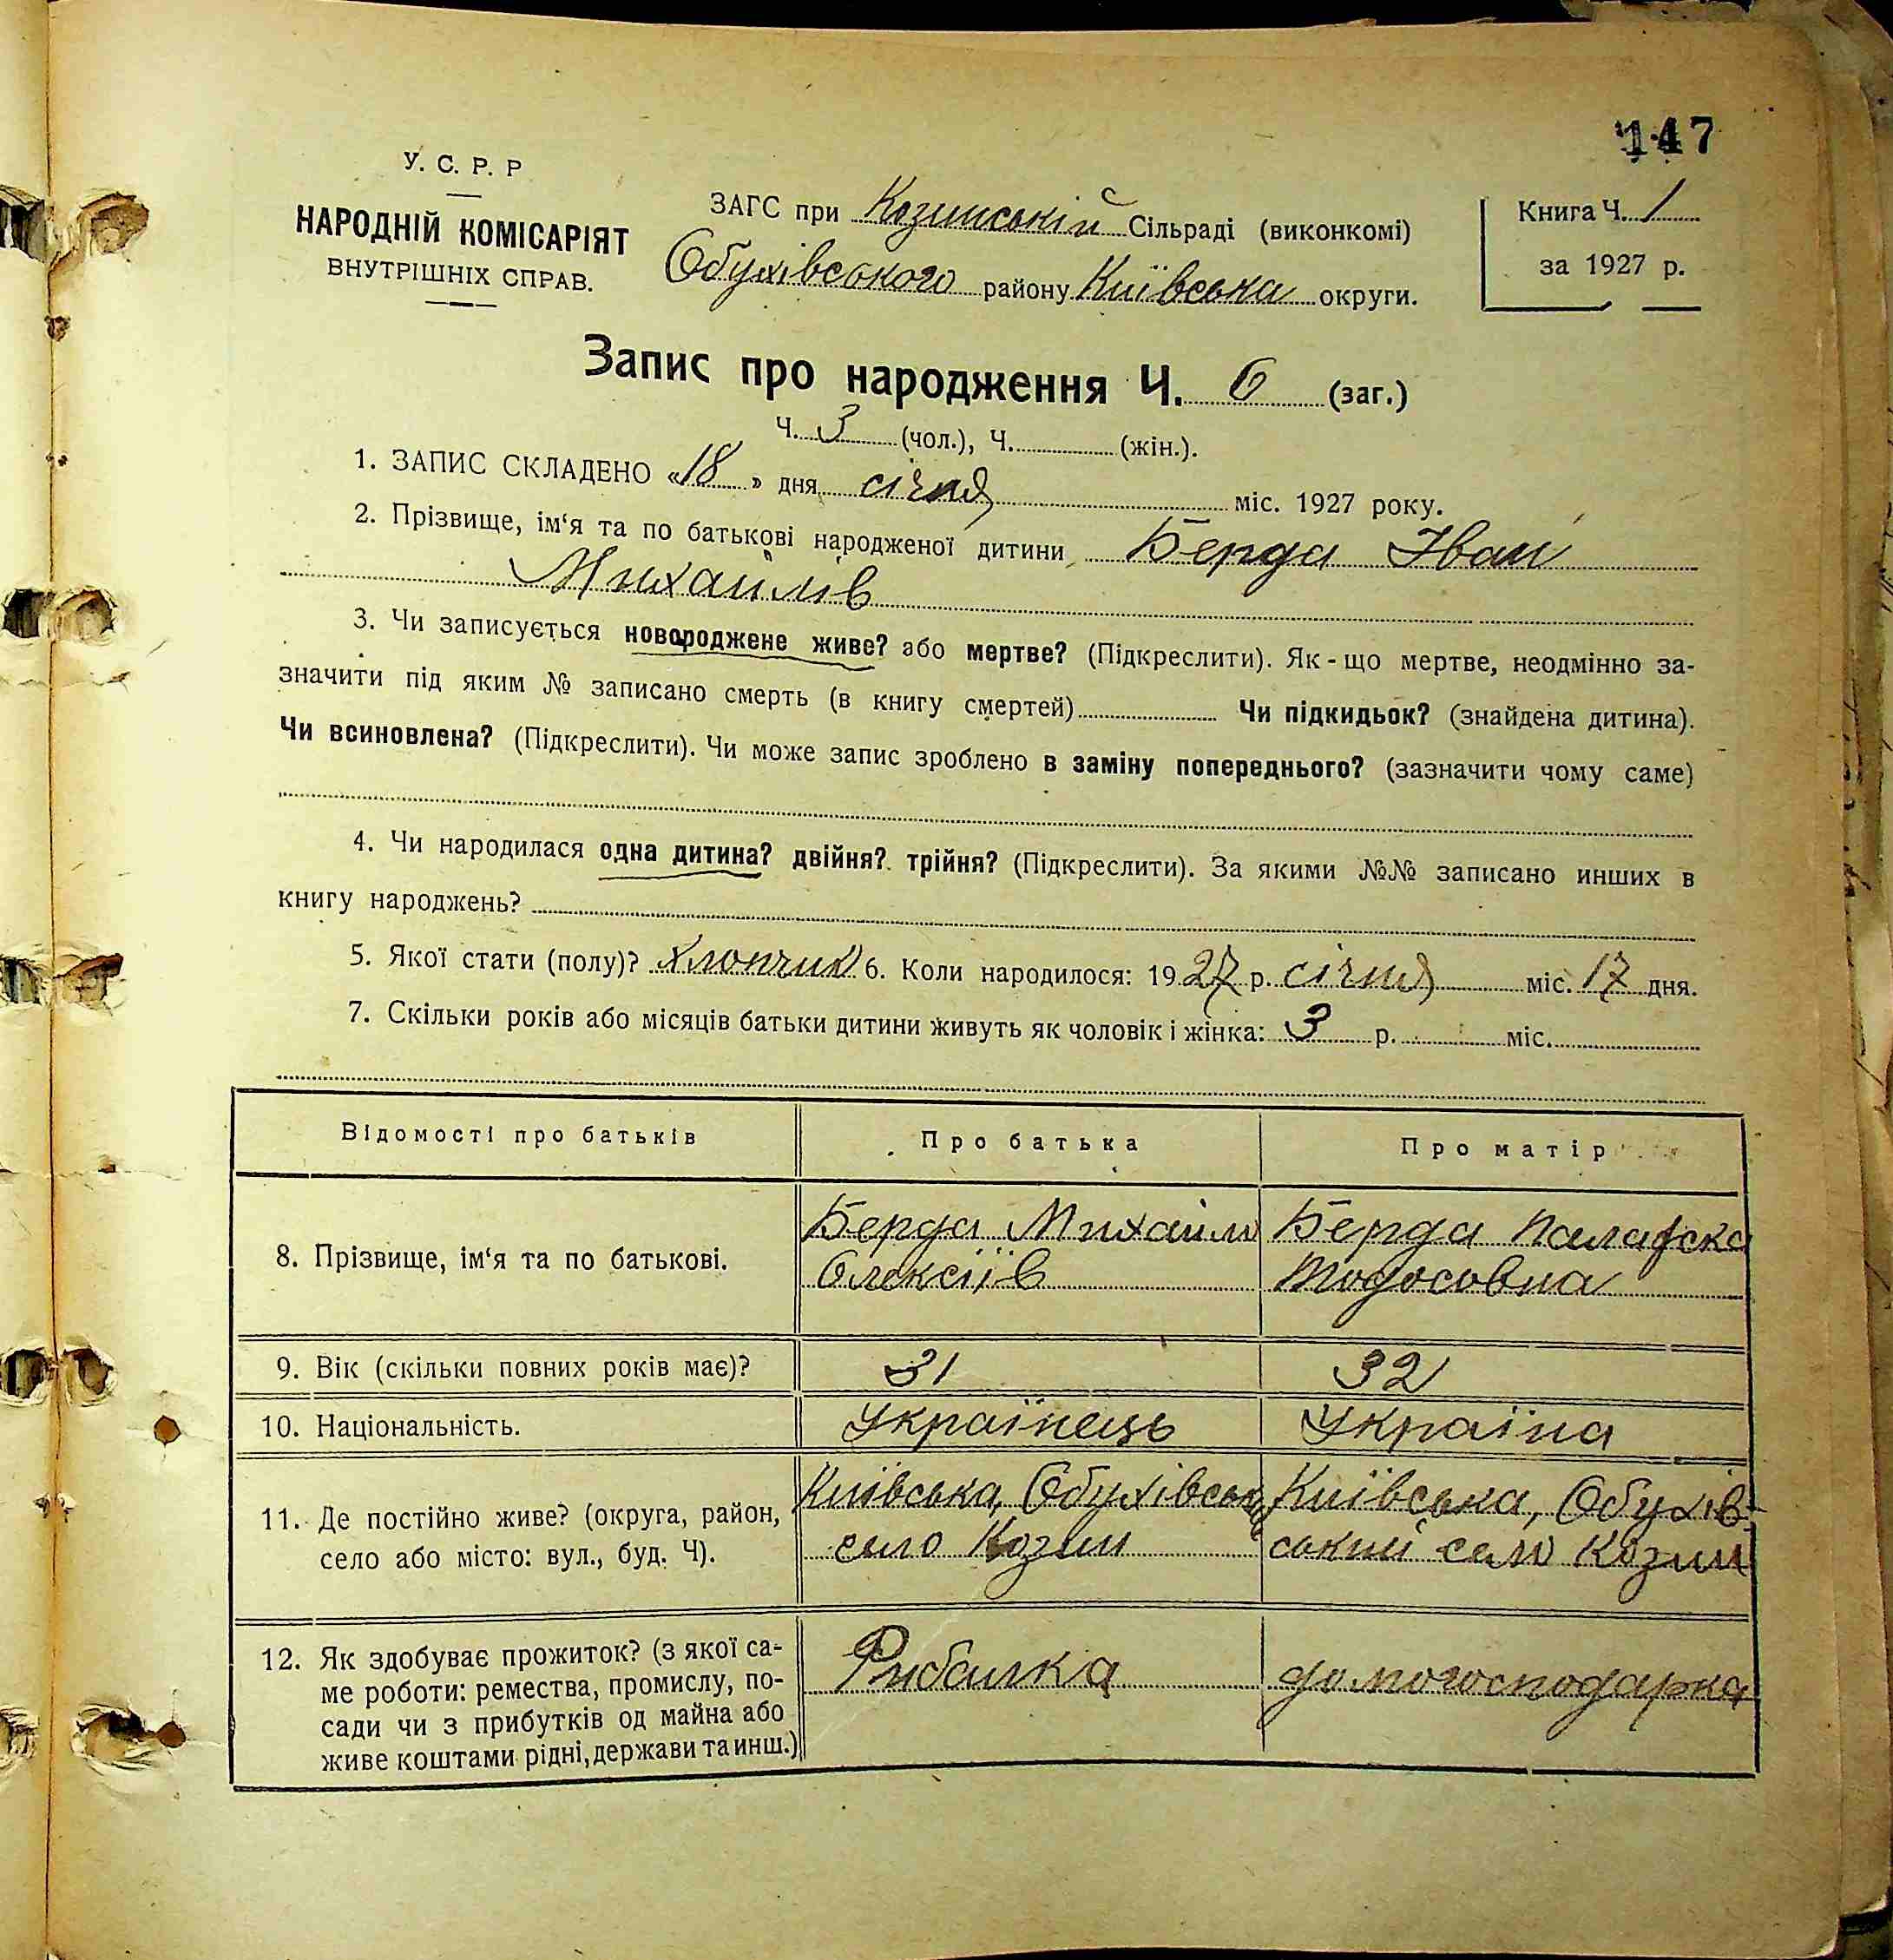 147
У. С. Р. Р
НАРОДНІЙ КОМІСАРІЯТ
ВНУТРІШНІХ СПРАВ.
ЗАГС при Козинській Сільраді (виконкомі)
Обухівського району Київська округи.
Книга Ч. 1
за 1927 р.
Запис про народження Ч. 6 (заг.)
Ч. 3 (чол.), Ч. (жін.).
1. ЗАПИС СКЛАДЕНО «18» дня січня міс. 1927 року.
2. Прізвище, ім‘я та по батькові народженої дитини Берда Іван
Михайлів
3. Чи записується новороджене живе? або мертве? (Підкреслити). Як-що мертве, неодмінно за-
значити під яким № записано смерть (в книгу смертей) Чи підкидьок? (знайдена дитина).
Чи всиновлена? (Підкреслити). Чи може запис зроблено в заміну попереднього? (зазначити чому саме)
4. Чи народилася одна дитина? двійня? трійня? (Підкреслити). За якими №№ записано инших в
книгу народжень?
5. Якої стати (полу)? хлопчик 6. Коли народилося: 1927 р. січня міс. 17 дня.
7. Скільки років або місяців батьки дитини живуть як чоловік і жінка: 3 р. міс.
Відомості про батьків
Про батька
Про матір
8. Прізвище, ім‘я та по батькові.
Берда Михайло
Олексіїв
Берда Палажка
Тодосовна
9. Вік (скільки повних років має)?
31
32
10. Національність.
Українець
Україна
11. Де постійно живе? (округа, район,
село або місто: вул., буд. Ч).
Київська, Обухівськ
село Козин
Київська, Обухів-
ський село Козин
12. Як здобуває прожиток? (з якої са-
ме роботи: ремества, промислу, по-
сади чи з прибутків од майна або
живе коштами рідні, держави та инш.)
Рибалка
домогосподарка